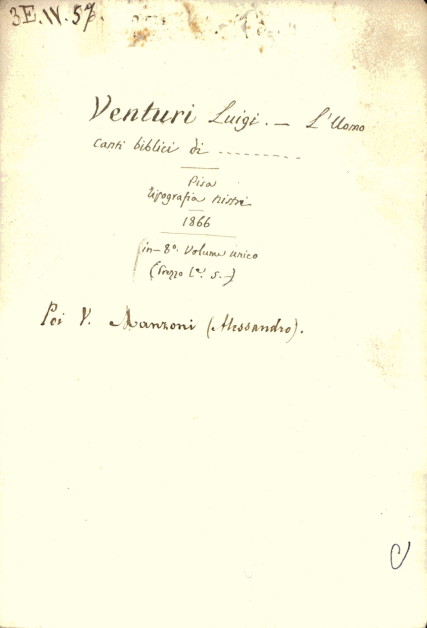 3E.IV.57.
Venturi Luigi. — L'Uomo
Canti biblici di ---------
Pisa
Tipografia Nistri
1866
in-8º. Volume unico
(Prezzo Lº. 5.-)
Poi V. Manzoni (Alessandro).